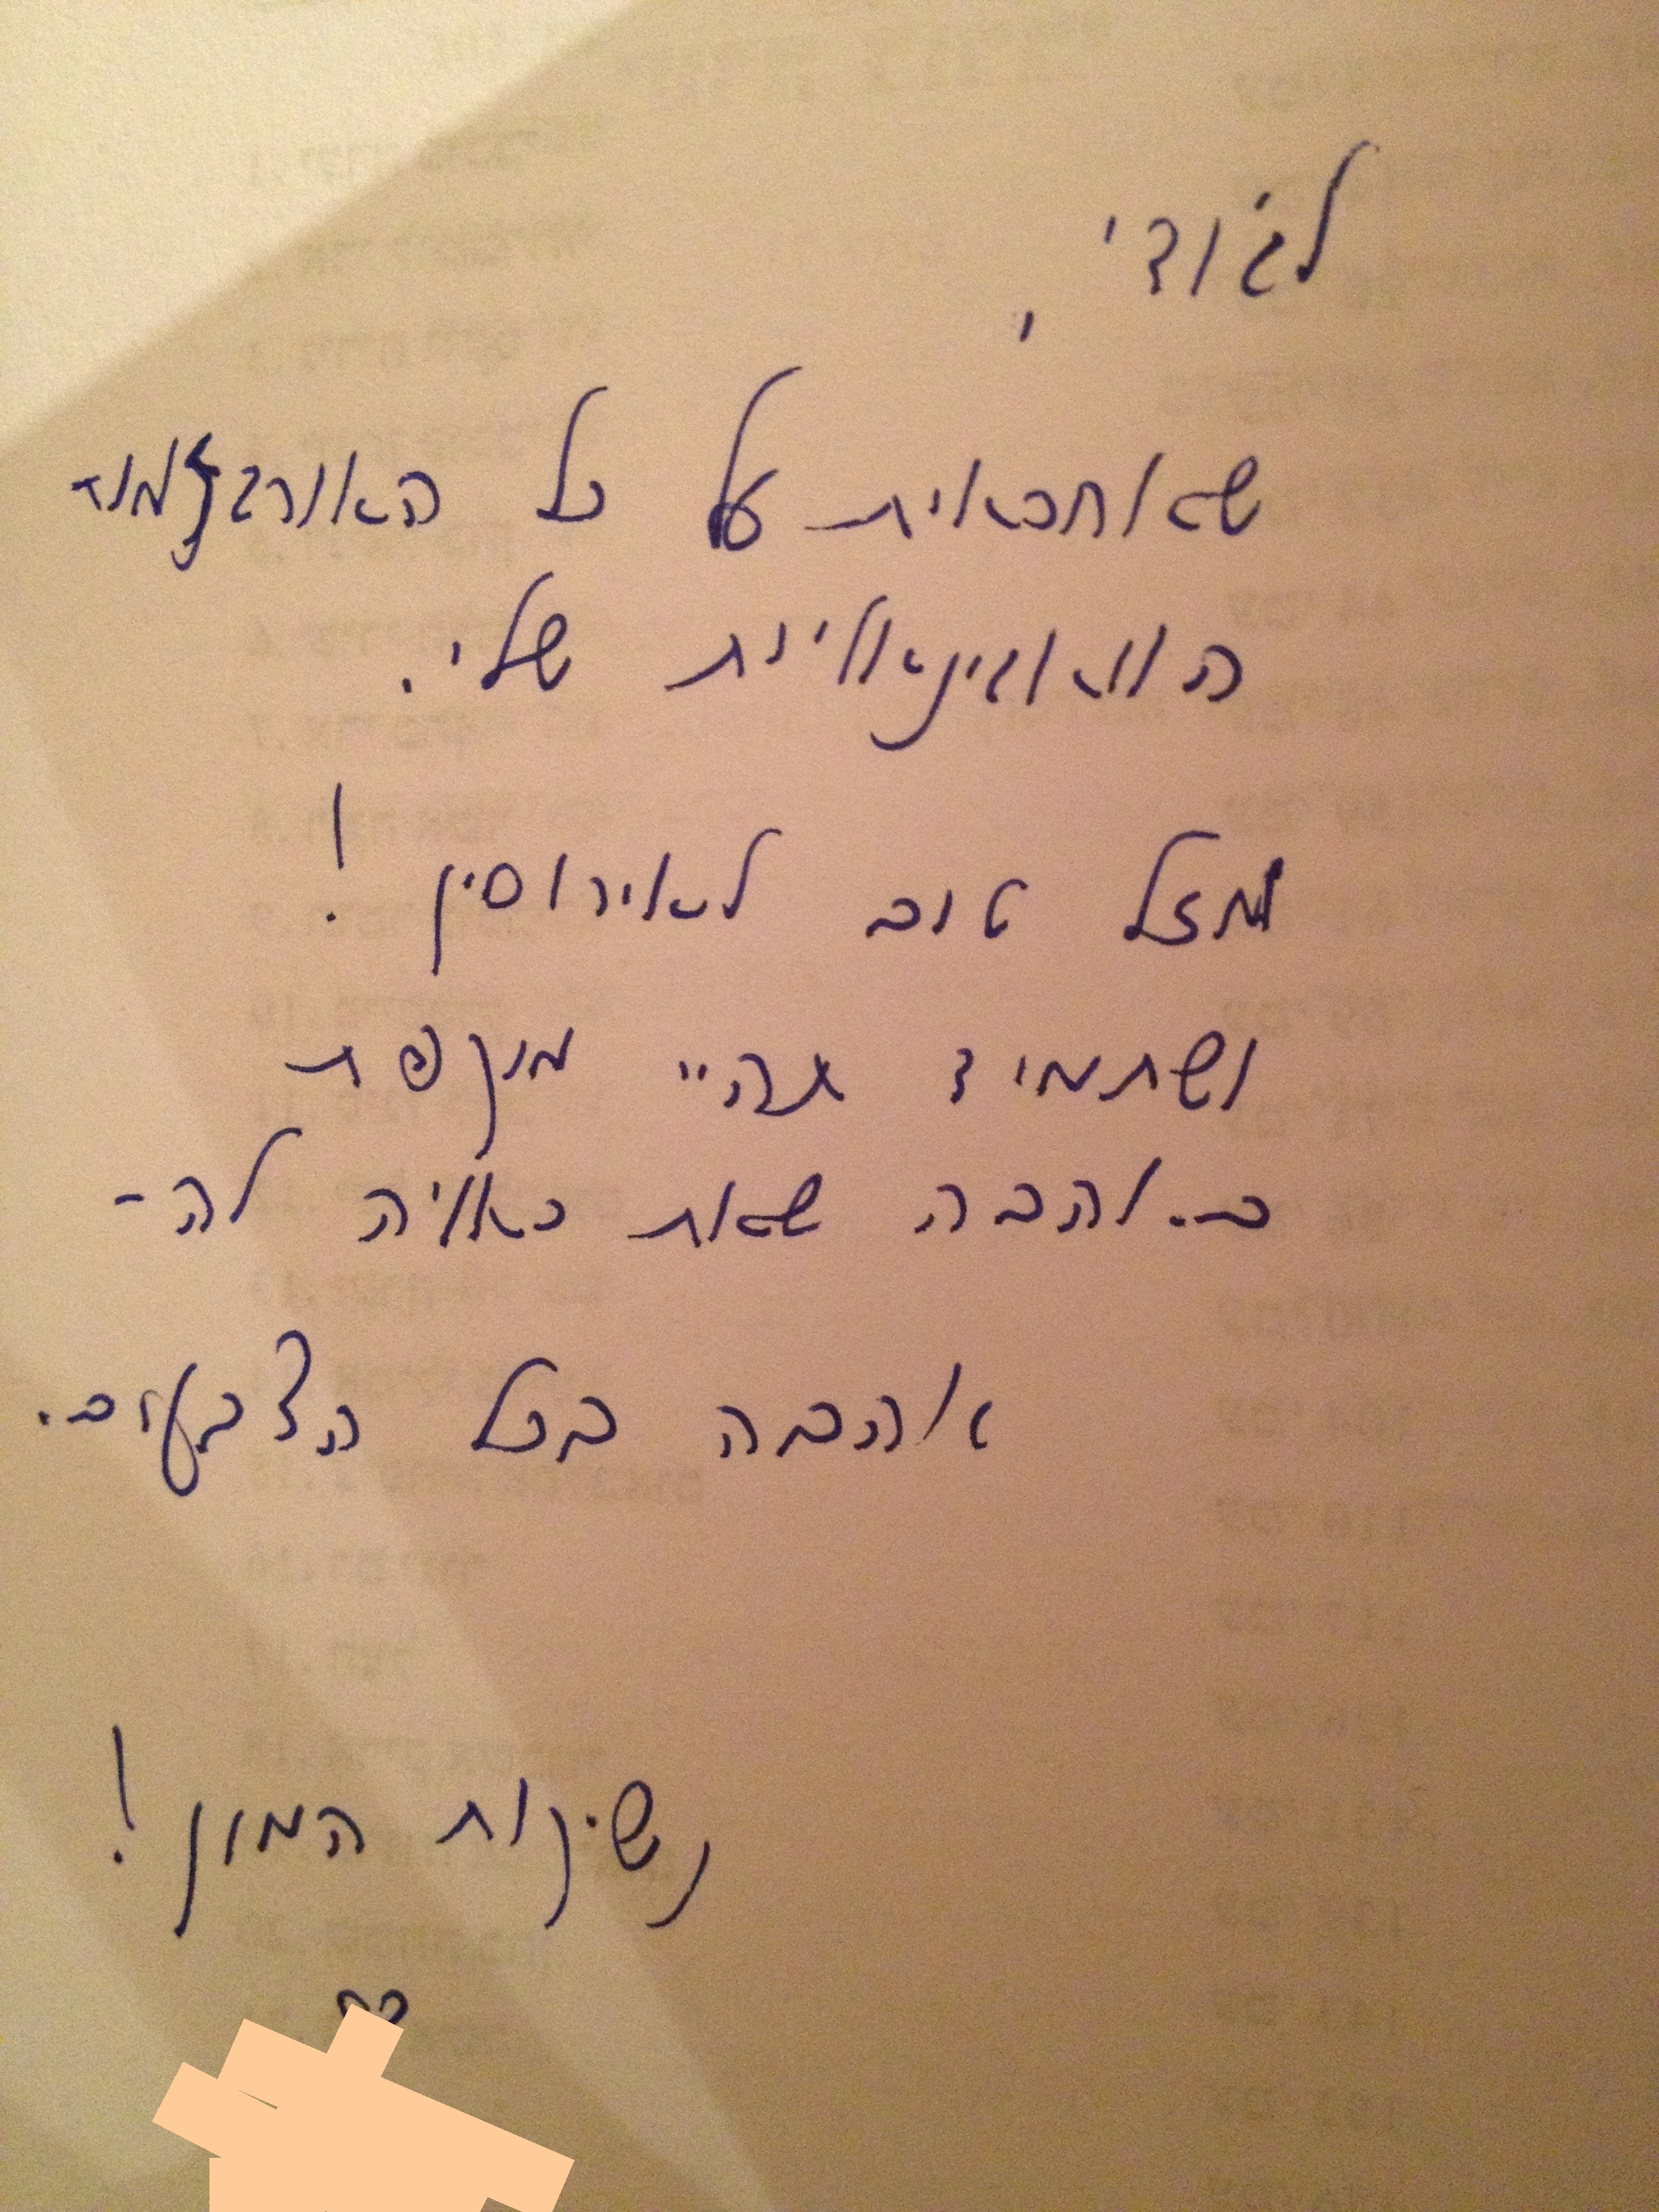 לג'ודי,
שאוחראית על כל האורגזמות
הוואגינאליות שלי.
מזל טוב לאירוסין!
ושתמיד תהיי מוקפת
באהבה שאת ראויה לה -
אהבה בכל הצבעים.
נשיקות המון!